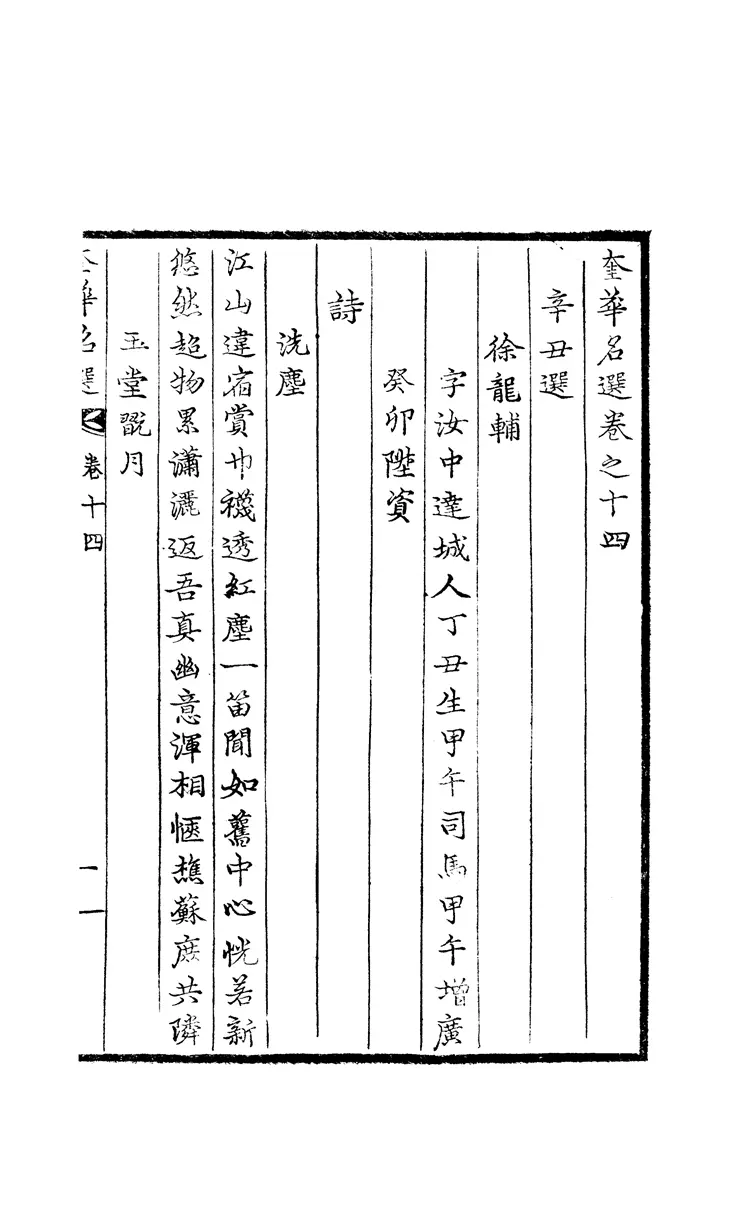 奎華名選卷之十四
辛丑選
徐龍輔
字汝中達城人丁丑生甲午司馬甲午增廣
癸卯陞資
詩
洗塵
江山違宿賞巾襪透紅塵一笛聞如舊中心恍若新
悠然超物累瀟灑返吾真幽意渾相愜樵蘇庶共隣
玉堂翫月
奎華名選 卷十四 一